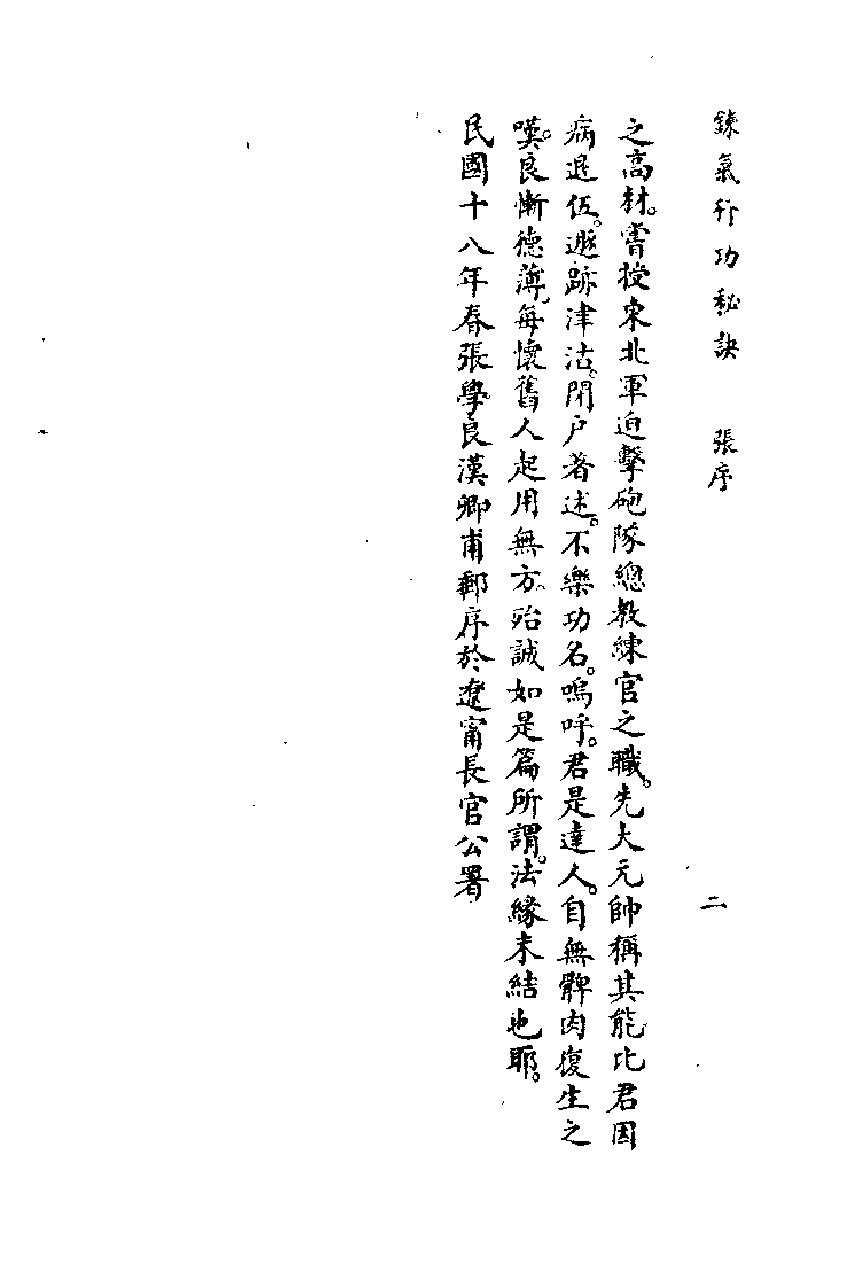 鍊氣行功秘訣　張序　二
之高材。嘗授東北軍迫擊砲隊總教練官之職。先大元帥稱其能。比君因
病退伍。遯跡津沽。閉户著述。不樂功名。嗚呼。君是達人。自無髀肉復生之
嘆。良慚德薄。每懷舊人起用無方。殆誠如是篇所謂。法緣未結也耶。
民國十八年春張學良漢卿甫郵序於遼甯長官公署